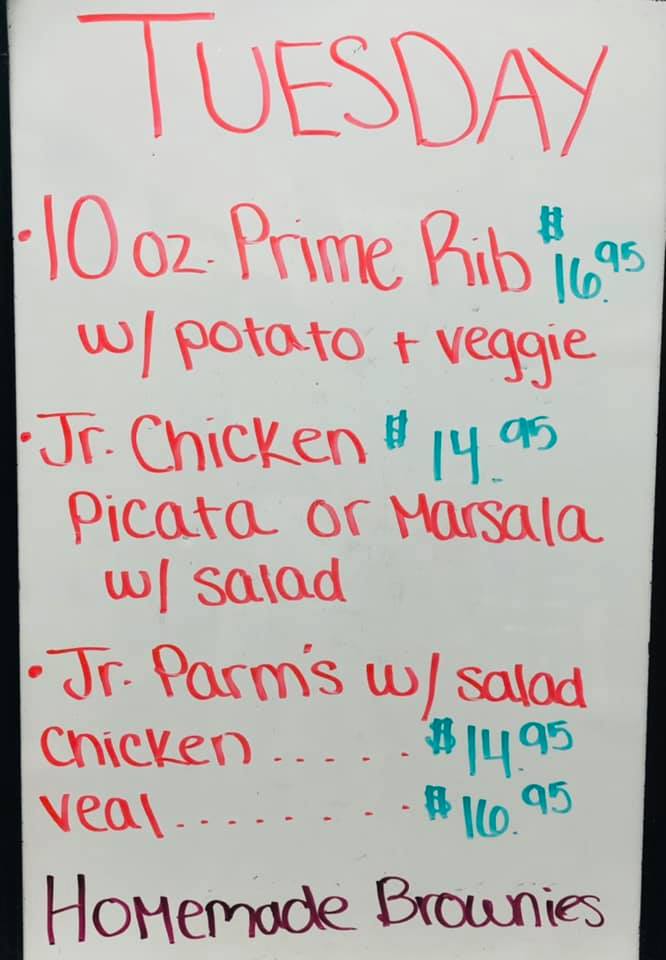 TUESDAY
•10 oz. Prime Rib $16.95
w/ potato + veggie
•Jr. Chicken $14.95
Picata or Marsala
w/ salad
•Jr. Parm's w/ salad
Chicken ..... $14.95
veal ........ $16.95
Homemade Brownies